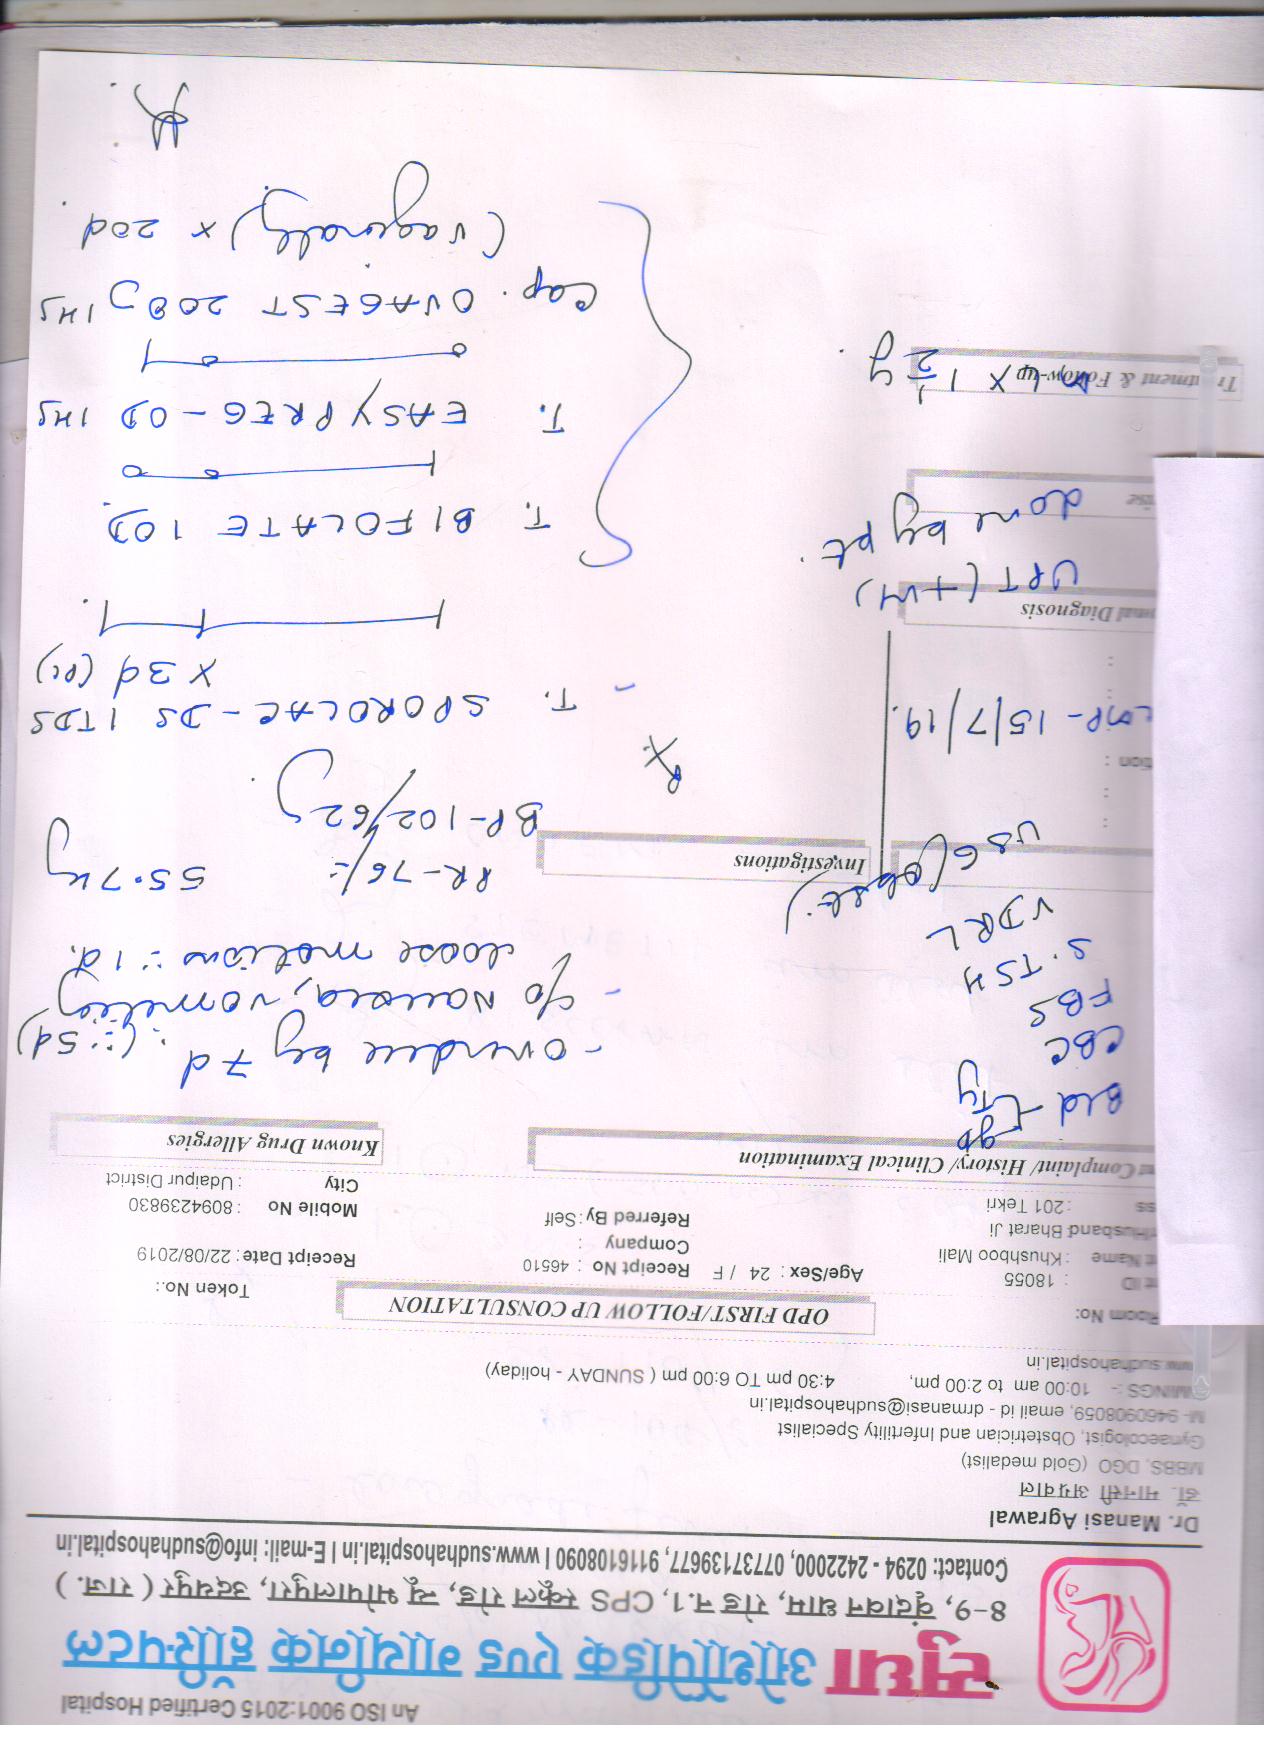 An ISO 9001:2015 Certified Hospital
सुधा ऑर्थोपैडिक एण्ड गायनिक हॉस्पिटल
8-9, वृंदावन धाम, रोड न.1, CPS स्कूल रोड, न्यू भोपालपुरा, उदयपुर ( राज. )
Contact: 0294 - 2422000, 07737139677, 9116108090 I www.sudhahospital.in I E-mail: info@sudhahospital.in
Dr. Manasi Agrawal
डॉ. मानसी अग्रवाल
MBBS, DGO (Gold medalist)
Gynaecologist, Obstetrician and Infertility Specialist
M- 9460908059, email id - drmanasi@sudhahospital.in
MINGS :- 10:00 am to 2:00 pm, 4:30 pm TO 6:00 pm ( SUNDAY - holiday)
www.sudhahospital.in
Room No:
OPD FIRST/FOLLOW UP CONSULTATION
Token No.:
t ID : 18055
Age/Sex : 24 / F
Receipt No : 46510
Receipt Date : 22/08/2019
t Name : Khushboo Mali
Company :
/Husband Bharat Ji
Referred By : Self
Mobile No : 8094239830
ss : 201 Tekri
City : Udaipur District
t Complaint/ History/ Clinical Examination
Known Drug Allergies
Bld gp
Ty
CBC
FBS
S. TSH
VDRL
USG (obst.)
- overdue by 7d (∵ 5d)
- c/o nausea, vomiting
loose motions ∵ 1d.
PR - 76/- 55.7 kg
BP - 102/62
Investigations
tion :
LMP - 15/7/19.
onal Diagnosis
UPT (+ve)
done by pt.
Treatment & Follow-up
x 1½ y.
Rx
- T. SPOROLAC - DS 1 TDS
x 3d (PC)
T. BIFOLATE 1 OD
T. EASYPREG - OD 1HS
Cap. OVAGEST 200 1HS
(vaginally) x 20d.